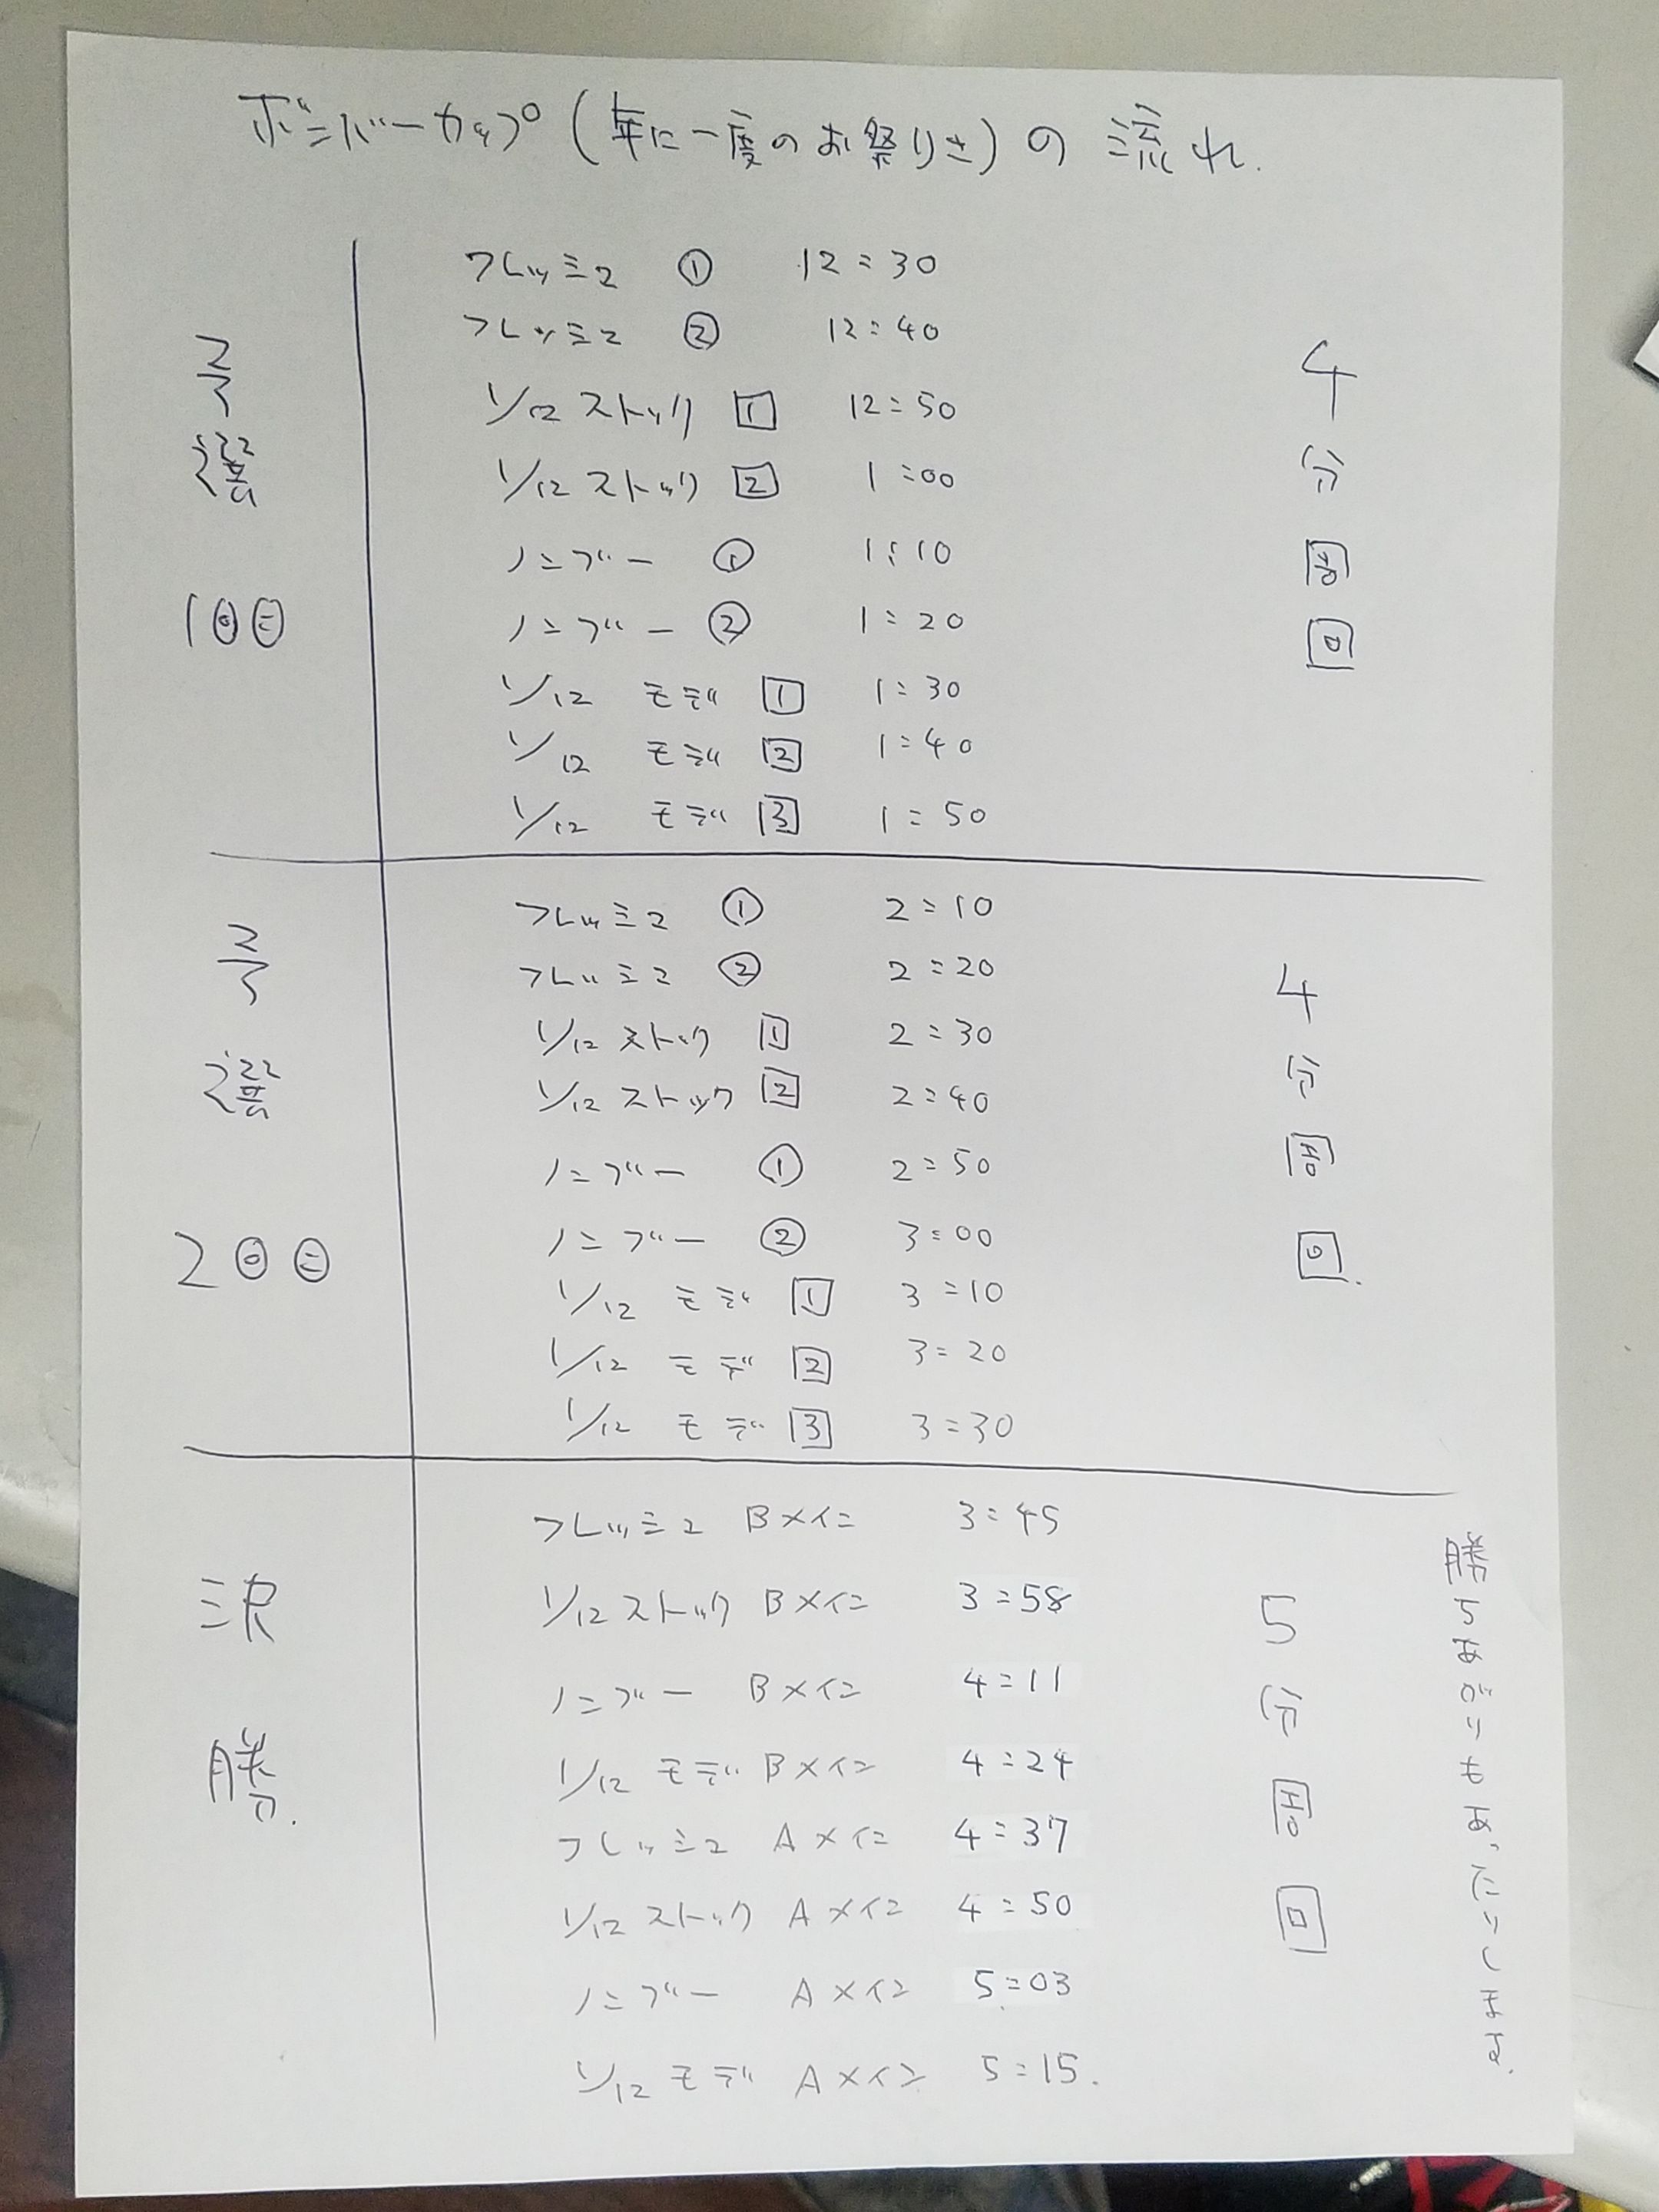 ボンバーカップ(年に一度のお祭りさ)の流れ.
予選1回目
フレッシュ ① 12:30
フレッシュ ② 12:40
1/12 ストック 1 12:50
1/12 ストック 2 1:00
ハンデー ① 1:10
ハンデー ② 1:20
1/12 モデ 1 1:30
1/12 モデ 2 1:40
1/12 モデ 3 1:50
4分周回
予選2回目
フレッシュ ① 2:10
フレッシュ ② 2:20
1/12 ストック 1 2:30
1/12 ストック 2 2:40
ハンデー ① 2:50
ハンデー ② 3:00
1/12 モデ 1 3:10
1/12 モデ 2 3:20
1/12 モデ 3 3:30
4分周回.
決勝.
フレッシュ Bメイン 3:45
1/12 ストック Bメイン 3:58
ハンデー Bメイン 4:11
1/12 モデ Bメイン 4:24
フレッシュ Aメイン 4:37
1/12 ストック Aメイン 4:50
ハンデー Aメイン 5:03
1/12 モデ Aメイン 5:15.
5分周回
勝ちあがりもあったりします.